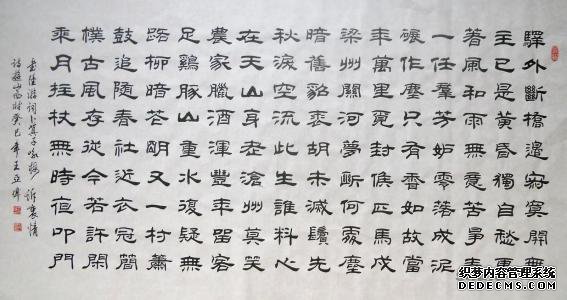 驛外斷橋邊寂寞開無
主已是黃昏獨自愁更
着風和雨無意苦爭春
一任羣芳妒零落成泥
碾作塵只有香如故當
年萬里覓封侯匹馬戍
梁州關河夢斷何處塵
暗舊貂裘胡未滅鬢先
秋淚空流此生誰料心
在天山身老滄州莫笑
農家臘酒渾豐年留客
足鷄豚山重水復疑無
路柳暗花明又一村簫
鼓追隨春社近衣冠簡
樸古風存從今若許閑
乘月拄杖無時夜叩門
書陸游詞卜算子咏梅訴衷情
詩遊山西村癸巳年王亞
织梦内容管理系统
DEDECMS.COM